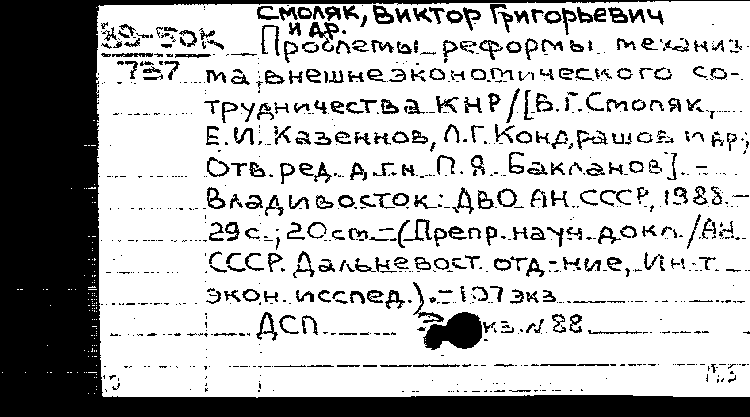 Смоляк, Виктор Григорьевич
и др.
89-50К Проблемы реформы механиз
737 ма внешнеэкономического со-
трудничества КНР/[В.Г.Смоляк,
Е.И. Казеннов, Л.Г. Кондрашов и др.;
Отв. ред. д.г.н. П.Я. Бакланов]. -
Владивосток: ДВО АН СССР, 1988. -
29с.; 20cm. - (Препр. науч. докл./АН
СССР. Дальневост. отд-ние, Ин-т
экон. исслед.). - 107 экз
ДСП кз. N 88.